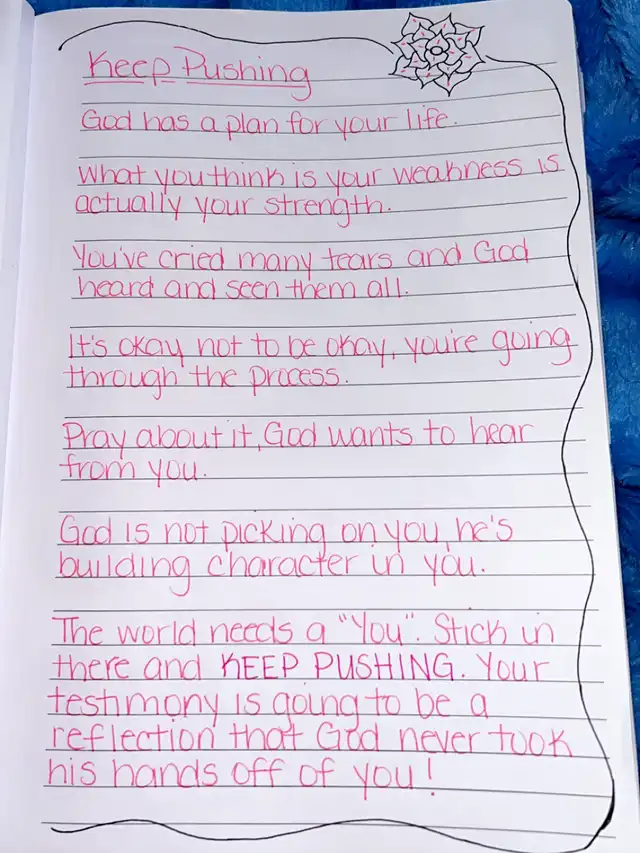 Keep Pushing
God has a plan for your life.
What you think is your weakness is
actually your strength.
You've cried many tears and God
heard and seen them all.
It's okay not to be okay, you're going
through the process.
Pray about it, God wants to hear
from you.
God is not picking on you, he's
building character in you.
The world needs a "You". Stick in
there and KEEP PUSHING. Your
testimony is going to be a
reflection that God never took
his hands off of you!